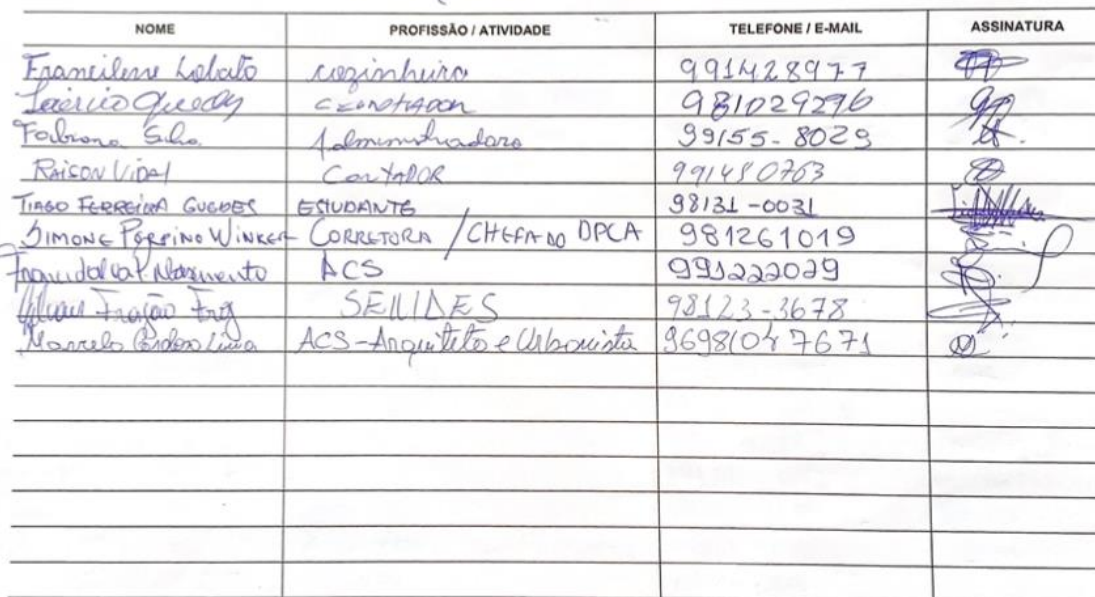 NOME PROFISSÃO / ATIVIDADE TELEFONE / E-MAIL ASSINATURA
Francilene Lobato cozinheira 991428977
Laércio 981029296
Fabiana Silva Administradora 99155-8029
RAISON VIDAL CONTADOR 991480763
TIAGO FERREIRA GUEDES ESTUDANTE 98131-0031
SIMONE PORPINO WINKER CORRETORA / CHEFA DO DPCA 981261019
Nascimento ACS 991222029
98123-3678
Marcelo Cardoso Lima ACS-Arquiteto e Urbanista 96981047671